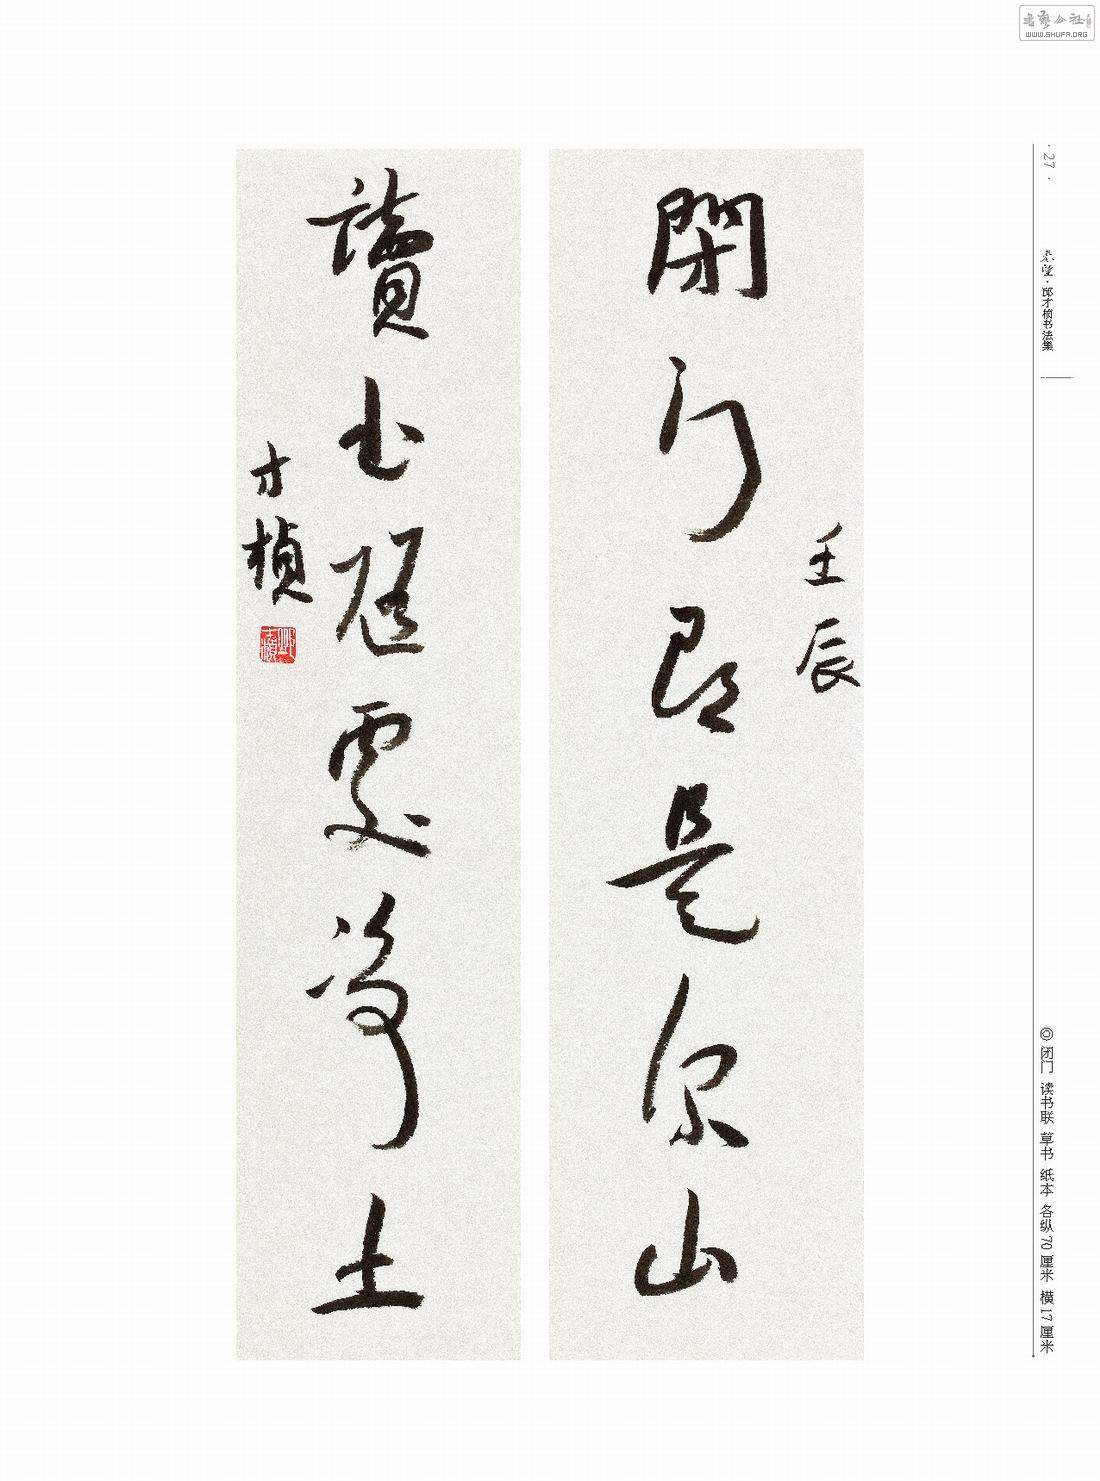 书艺公社
WWW.SHUFA.ORG
· 27 ·
邱才桢书法集
閉門即是深山
壬辰
讀書隨處淨土
才楨
◎ 闭门 读书联 草书 纸本 各纵70厘米 横17厘米